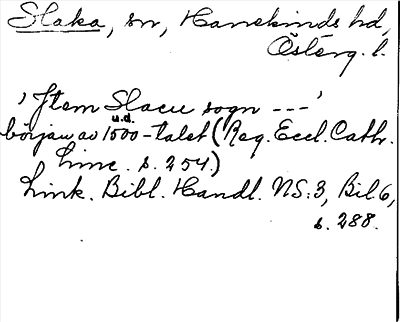 Slaka, sn, Hanekinds hd,
Österg. l.
'Jtem Slacu sogn ---'
u.d.
början av 1500-talet (Reg. Eccl. Cath.
Linc. s. 254.)
Link. Bibl. Handl. NS:3, Bil. 6,
s. 288.